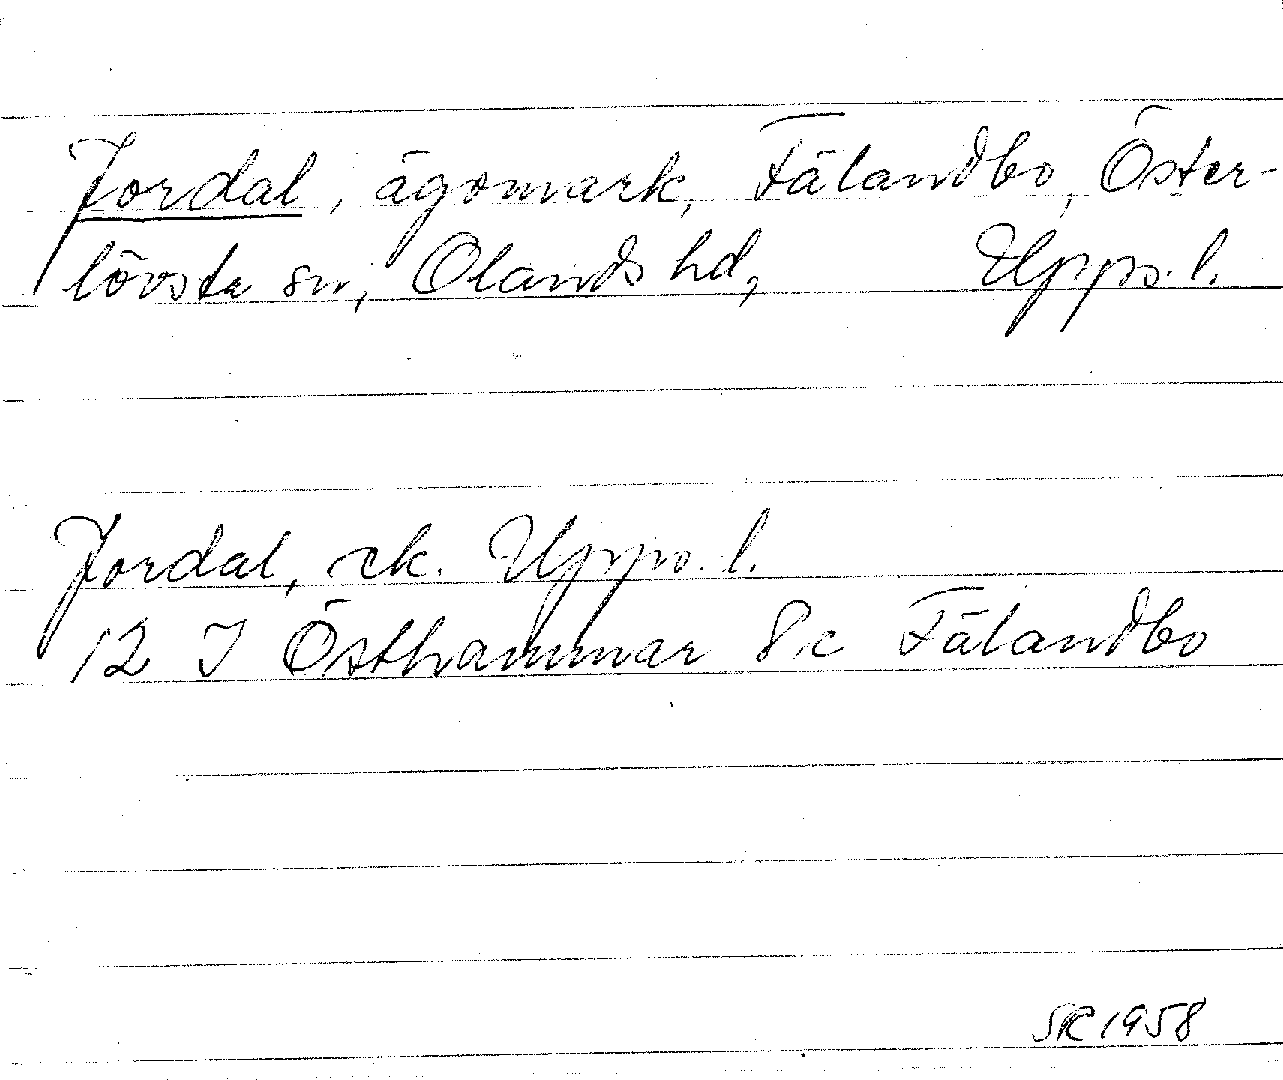 Jordal, ägomark, Fälandbo, Öster-
lövsta sn, Olands hd, Upps. l.
Jordal, ek. Upps. l.
12 I Östhammar 8 c Fälandbo
SR 1958